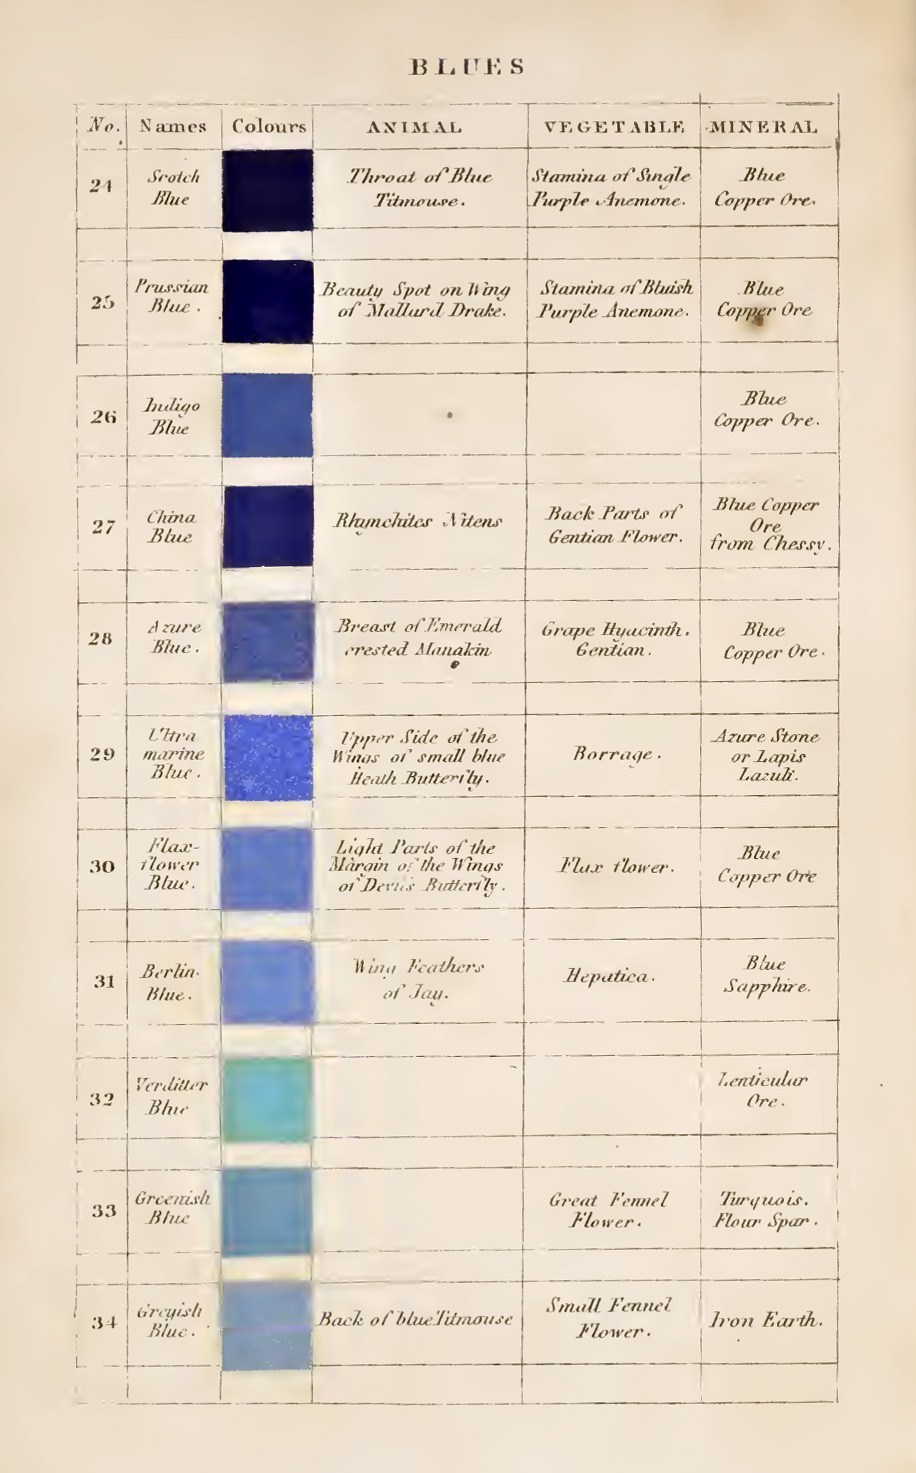 BLUES
No. Names Colours ANIMAL VEGETABLE MINERAL
24
Scotch
Blue
Throat of Blue
Titmouse.
Stamina of Single
Purple Anemone.
Blue
Copper Ore.
25
Prussian
Blue.
Beauty Spot on Wing
of Mallard Drake.
Stamina of Bluish
Purple Anemone.
Blue
Copper Ore
26
Indigo
Blue
Blue
Copper Ore.
27
China
Blue
Rhynchites Nitens
Back Parts of
Gentian Flower.
Blue Copper
Ore
from Chessy.
28
Azure
Blue.
Breast of Emerald
crested Manakin
Grape Hyacinth.
Gentian.
Blue
Copper Ore.
29
Ultra
marine
Blue.
Upper Side of the
Wings of small blue
Heath Butterfly.
Borrage.
Azure Stone
or Lapis
Lazuli.
30
Flax-
flower
Blue.
Light Parts of the
Margin of the Wings
of Devil's Butterfly.
Flax flower.
Blue
Copper Ore
31
Berlin
Blue.
Wing Feathers
of Jay.
Hepatica.
Blue
Sapphire.
32
Verditter
Blue
Lenticular
Ore.
33
Greenish
Blue
Great Fennel
Flower.
Turquois.
Flour Spar.
34
Greyish
Blue.
Back of blue Titmouse
Small Fennel
Flower.
Iron Earth.